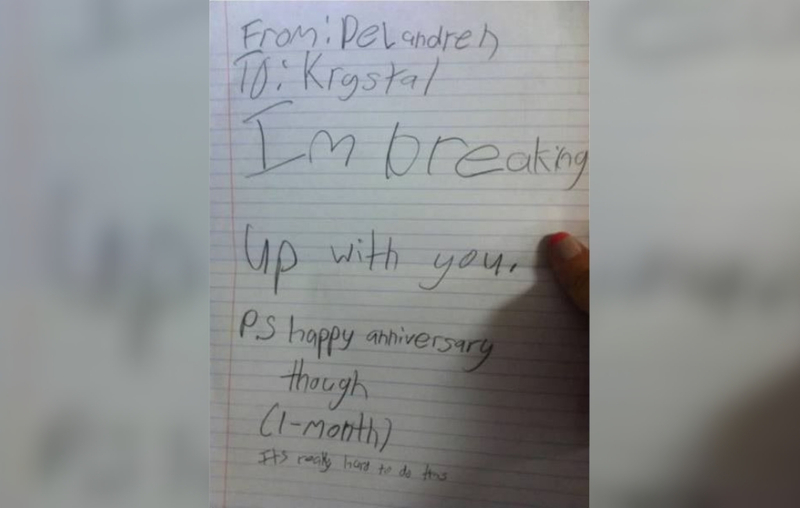 From: DeLandreh
To: Krystal
Im breaking
up with you.
P.S happy anniversary
though
(1-month)
It's really hard to do this